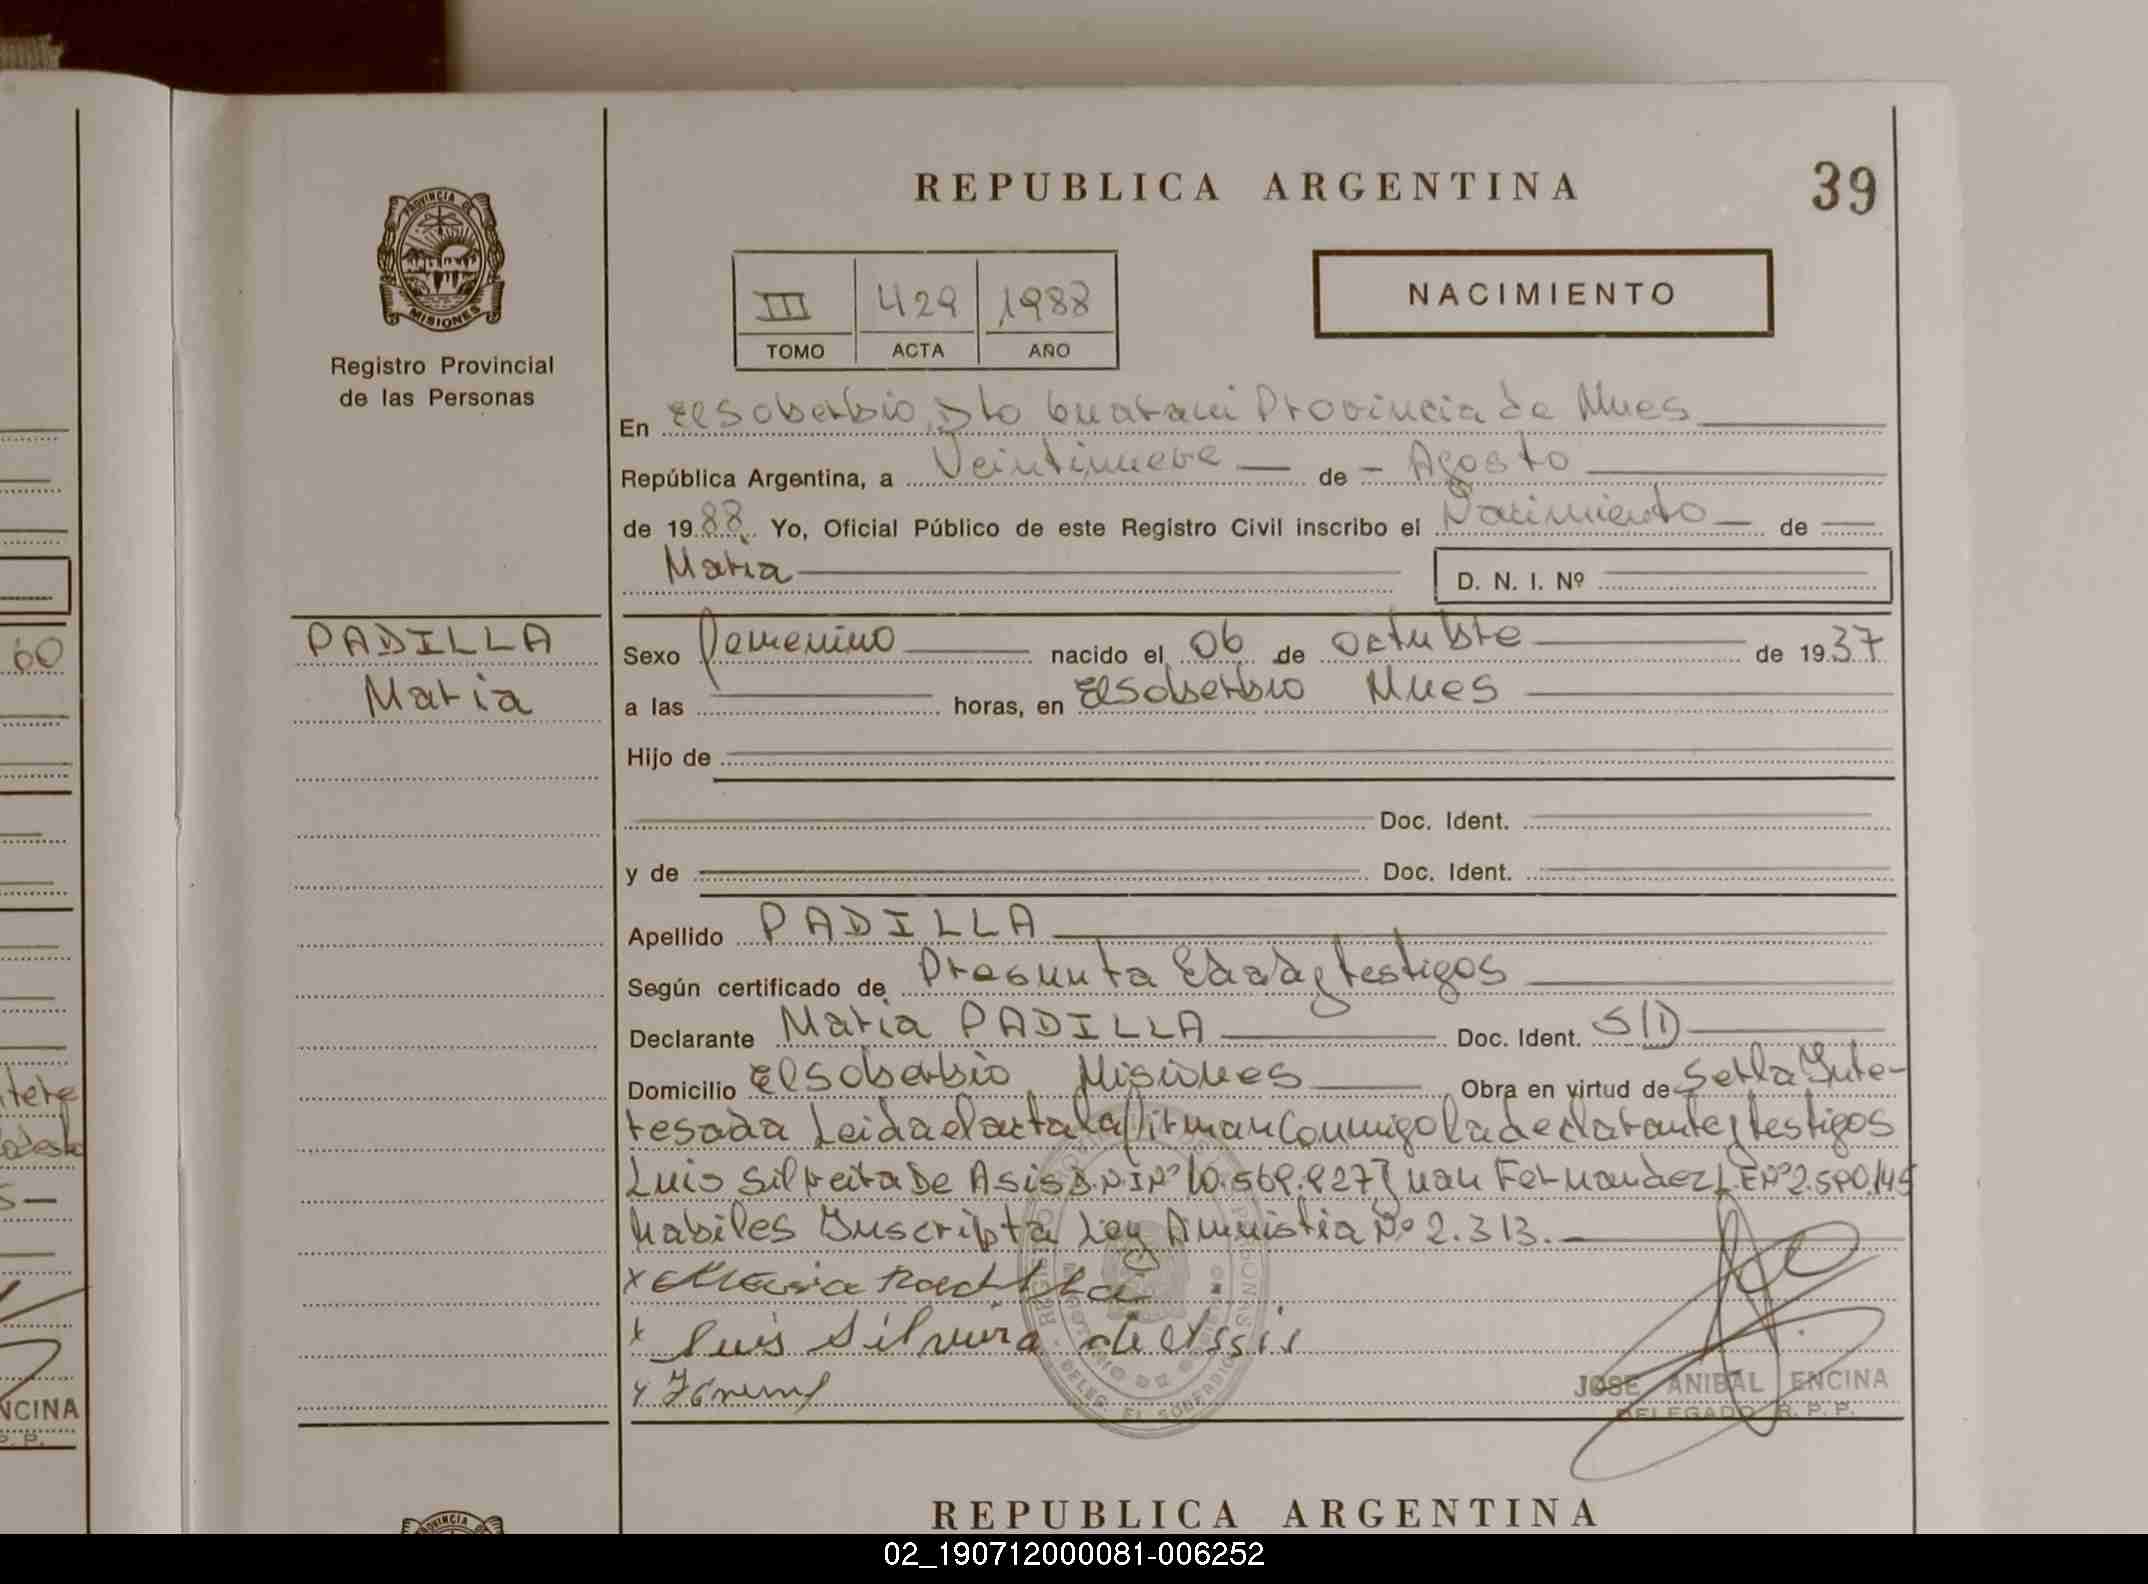 REPUBLICA ARGENTINA
39
PROVINCIA DE
MISIONES
Registro Provincial
de las Personas
III 429 1988
TOMO ACTA AÑO
NACIMIENTO
En El Soberbio, Dto Guarani Provincia de Mnes
República Argentina, a Veintinueve de Agosto
de 1988. Yo, Oficial Público de este Registro Civil inscribo el Nacimiento de
Maria D. N. I. Nº
PADILLA
Maria
Sexo Femenino nacido el 06 de Octubre de 1937
a las horas, en El Soberbio Mnes
Hijo de
Doc. Ident.
y de Doc. Ident.
Apellido PADILLA
Según certificado de Presunta Edad y testigos
Declarante Maria PADILLA Doc. Ident. S/D
Domicilio El Soberbio Misiones Obra en virtud de Ser la Inte-
resada Leida el acta la firman Conmigo la declarante y testigos
Luis Silveira De Asis D.N.I Nº 10.569.827 y Juan Fernandez L.E Nº 2.590.145
habiles Inscripta Ley Amnistia Nº 2.313.
x Maria Padilla
x Luis Silveira de Assis
x
JOSE ANIBAL ENCINA
DELEGADO R. P. P.
60
NCINA
P. P.
REPUBLICA ARGENTINA
PROVINCIA DE
02_190712000081-006252